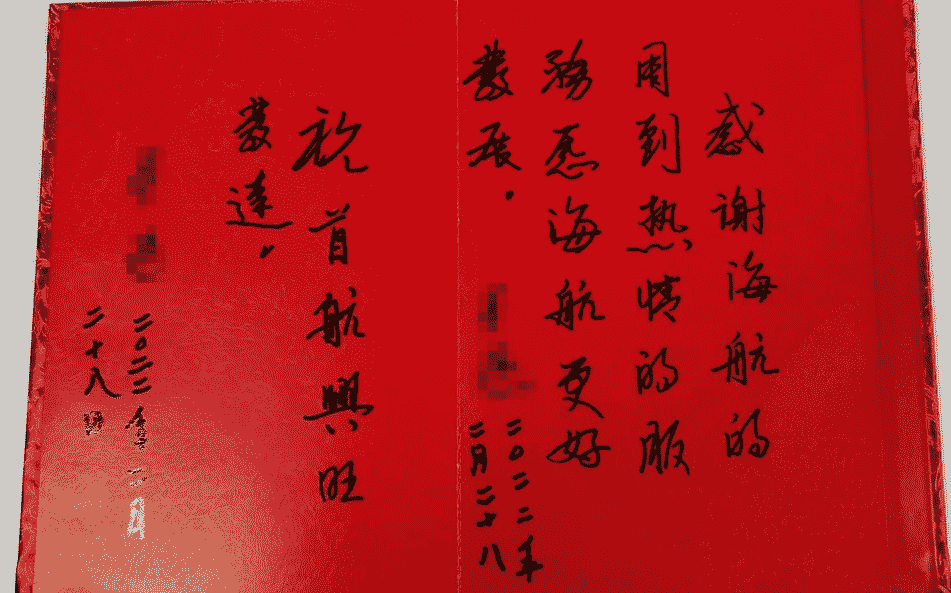 感谢海航的
周到热情的服
務愿海航更好
發展。
二〇二二年
二月二十八
祝首航興旺
發達。
二〇二二年二月
二十八日